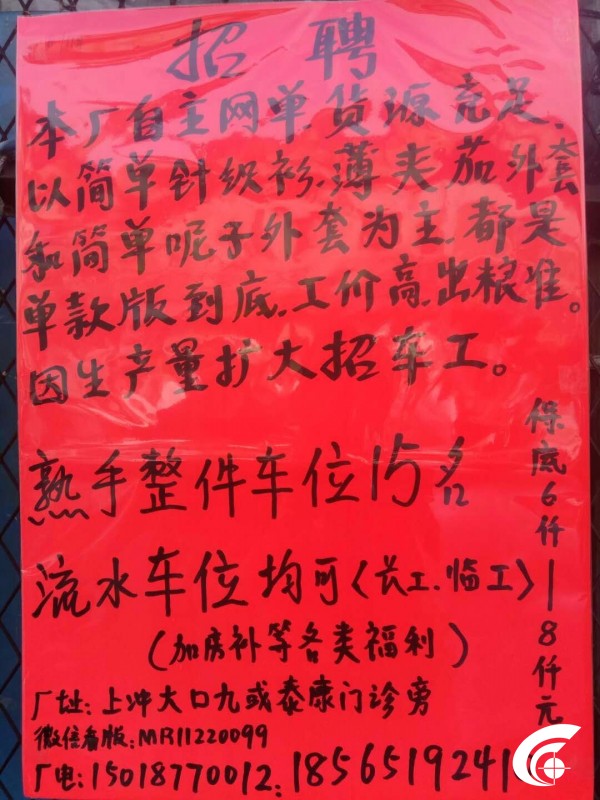 招聘
本厂自主网单.货源充足、
以简单针织衫.薄夹茄外套
和简单呢子外套为主.都是
单款版到底.工价高.出粮准。
因生产量扩大招车工。
熟手整件车位15名
流水车位均可〈长工.临工〉
(加房补等各类福利)
保底6仟—8仟元
厂址:上冲大口九或泰康门诊旁
微信看版:MR11220099
厂电:15018770012:1856519241